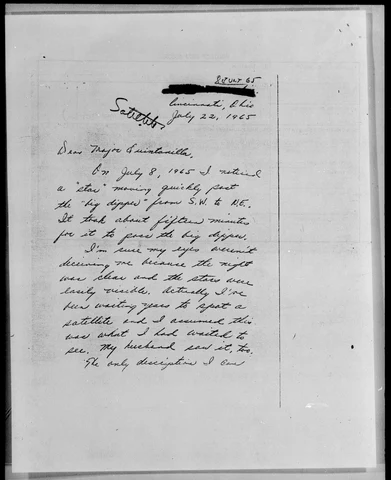 8 July 65
Satellite
Cincinnati, Ohio
July 22, 1965
Dear Major Quintanilla,
On July 8, 1965 I noticed
a "star" moving quickly past
the "big dipper" from S.W. to N.E.
It took about fifteen minutes
for it to pass the big dipper.
I'm sure my eyes weren't
deceiving me because the night
was clear and the stars were
easily visible. Actually I've
been waiting years to spot a
satellite and I assumed this
was what I had waited to
see. My husband saw it, too.
The only description I can